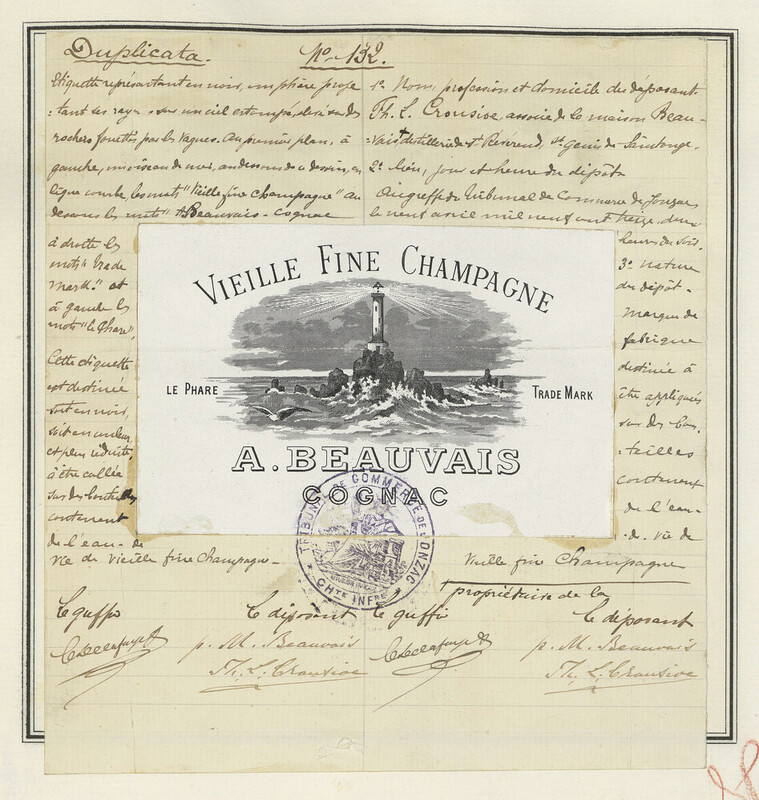 Duplicata.
No. 132.
Etiquette représentant en noir, un phare proje
-tant ses rayons sur un ciel estompé, sur des
rochers fouettés par les vagues. Au premier plan, à
gauche, un oiseau de mer, au dessous de ce dessin, en
ligne courbe, les mots "Vieille fine champagne" au
dessous les mots "A. Beauvais - Cognac
à droite les
mots "Trade
mark." et
à gauche les
mots "le Phare",
Cette étiquette
est destinée
soit en noir,
soit en couleur,
et plus réduite,
à être collée
sur des bouteilles
contenant
de l'eau-de
vie de vieille fine champagne -
1o Nom, profession et domicile du déposant
Th. L. Crousive, associé de la maison Beau-
vais + distillerie de St Révérend, St Genis de Saintonge.
2o Lieu, jour et heure du dépôt
Au greffe du tribunal de Commerce de Jonzac
le neuf avril mil neuf cent treize, deux
heures du soir.
3o Nature
du dépôt -
Marque de
fabrique
destinée à
être appliquée
sur des bou-
-teilles
contenant
de l'eau-
-de-vie de
Vieille fine Champagne
+ propriétaire de la
VIEILLE FINE CHAMPAGNE
LE PHARE
TRADE MARK
A. BEAUVAIS
COGNAC
TRIBUNAL DE COMMERCE DE JONZAC
CHTE INFRE
Le greffier
Le déposant
Le greffier
Le déposant
p. M. Beauvais
p. M. Beauvais
Th. L. Crousive
Th. L. Crousive